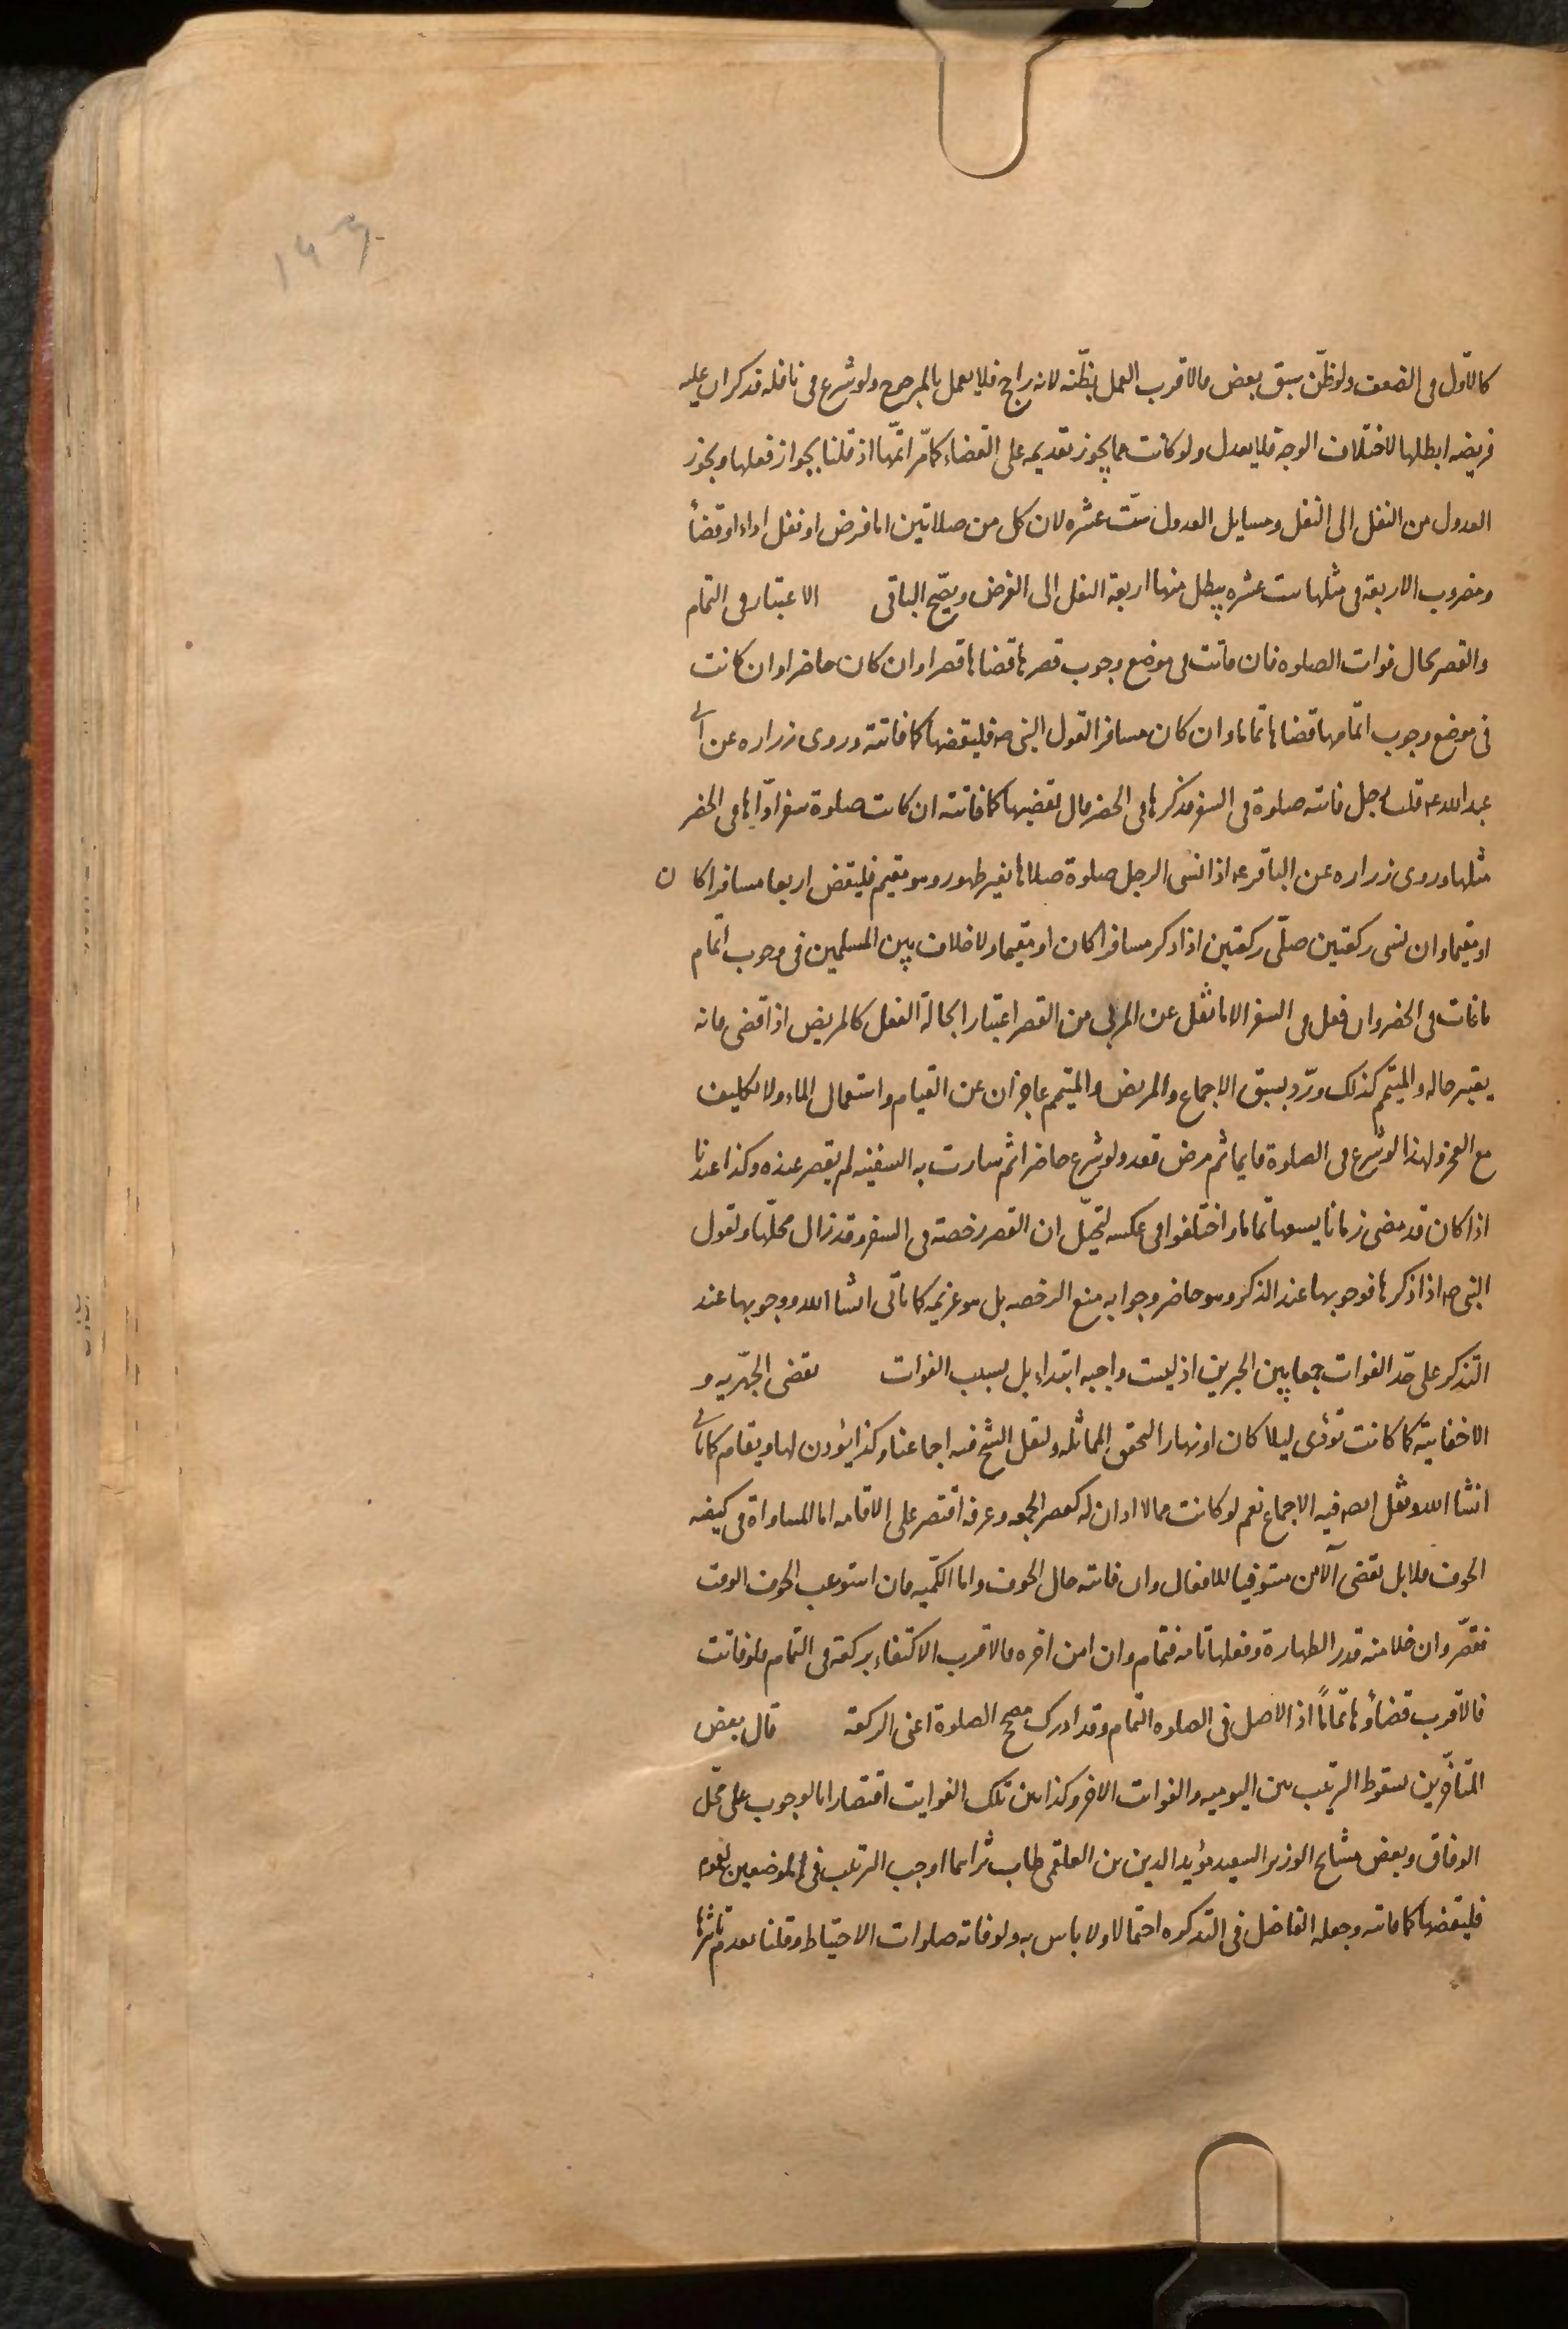 كالاول فى الضعف ولو ظنّ سبق بعض فالاقرب العمل بظنّه لانه راجح فلا يعمل بالمرجوح ولو شرع فى نافله فذكر ان عليه
فريضه ابطلها لاختلاف الوجه فلا يعدل ولو كانت مما يجوز تقديمه على القضاء كما مرّ اتمّها اذ قلنا بجواز فعلها ويجوز
العدول من النفل الى النفل ومسايل العدول ستّ عشره لان كل من صلاتين اما فرض او نفل اداء او قضأ
ومضروب الاربعة فى مثلها ست عشره يبطل منها اربعة النفل الى الفرض ويصّح الباقى الاعتبار فى التمام
والقصر بحال فوات الصلوه فان فاتت فى موضع وجوب قصرها قضاها قصرا وان كان حاضرا وان كانت
فى موضع وجوب اتمامها قضاها تماما وان كان مسافرا لقول النبى صه فليقضها كما فاتته وروى زراره عن ابى
عبد الله عه قلت رجل فاتته صلوة فى السفر فذكرها فى الحضر قال يقضيها كما فاتته ان كانت صلوة سفر ادّاها فى الحضر
مثلها وروى زراره عن الباقر عه اذا نسى الرجل صلوة صلاها بغير طهور وهو مقيم فليقض اربعا مسافرا كان
او مقيما وان نسى ركعتين صلّى ركعتين اذا ذكر مسافرا كان او مقيما ولا خلاف بين المسلمين فى وجوب اتمام
ما فات فى الحضر وان فعل فى السفر الا ما نقل عن المزنى من القصر اعتبارا بحالة الفعل كالمريض اذا قضى فانه
يعتبر حاله والمتيمّم كذلك وردّ بسبق الاجماع والمريض والمتيمم عاجزان عن القيام واستعمال الماء ولا تكليف
مع العجز ولهذا لو شرع فى الصلوة قايما ثم مرض قعد ولو شرع حاضرا ثم سارت به السفينه لم يقصر عنده وكذا عندنا
اذا كان قد مضى زمانا يسعها تماما واختلفوا فى عكسه لتخيّل ان القصر رخصة فى السفر وقد زال محلّها ولقول
النبى صه اذا ذكرها فوجوبها عند الذكر وهو حاضر وجوابه منع الرخصه بل هو عزيمه كما ياتى انشا الله ووجوبها عند
التذكر على حدّ الفوات جمعا بين الخبرين اذ ليست واجبه ابتداء بل بسبب الفوات يقضى الجهريه و
الاخفاتيّه كما كانت تؤدى ليلا كان او نهارا لتحقق المماثله ولنقل الشيخ فيه اجماعنا وكذا يؤذن لها ويقام كما ياتى
انشا الله ونقل فيه الاجماع نعم لو كانت مما لا اذان له كعصر الجمعه وعرفه اقتصر على الاقامه اما المساواة فى كيفيه
الخوف فلا بل يقضى الآمن مستوفيا للافعال وان فاتته حال الخوف واما الكمّيه فان استوعب الخوف الوقت
فقصّر وان خلا منه قدر الطهارة وفعلها تامه فتمام وان امن اخره فالاقرب الاكتفاء بركعة فى التمام فلو فاتت
فالاقرب قضاؤها تمامًا اذ الاصل فى الصلوه التمام وقد ادرك مصحح الصلوة اعنى الركعة قال بعض
المتاخّرين بسقوط الترتيب بين اليوميه والفوات الاخر وكذا بين تلك الفوايت اقتصارا بالوجوب على محّل
الوفاق وبعض مشايخ الوزير السعيد مؤيد الدين بن العلقمى طاب ثراهما اوجب الترتيب فى الموضعين لعموم
فليقضها كما فاتته وجعله الفاضل فى التذكره احتمالا ولا باس به ولو فاته صلوات الاحتياط وقلنا بعدم تاثرها